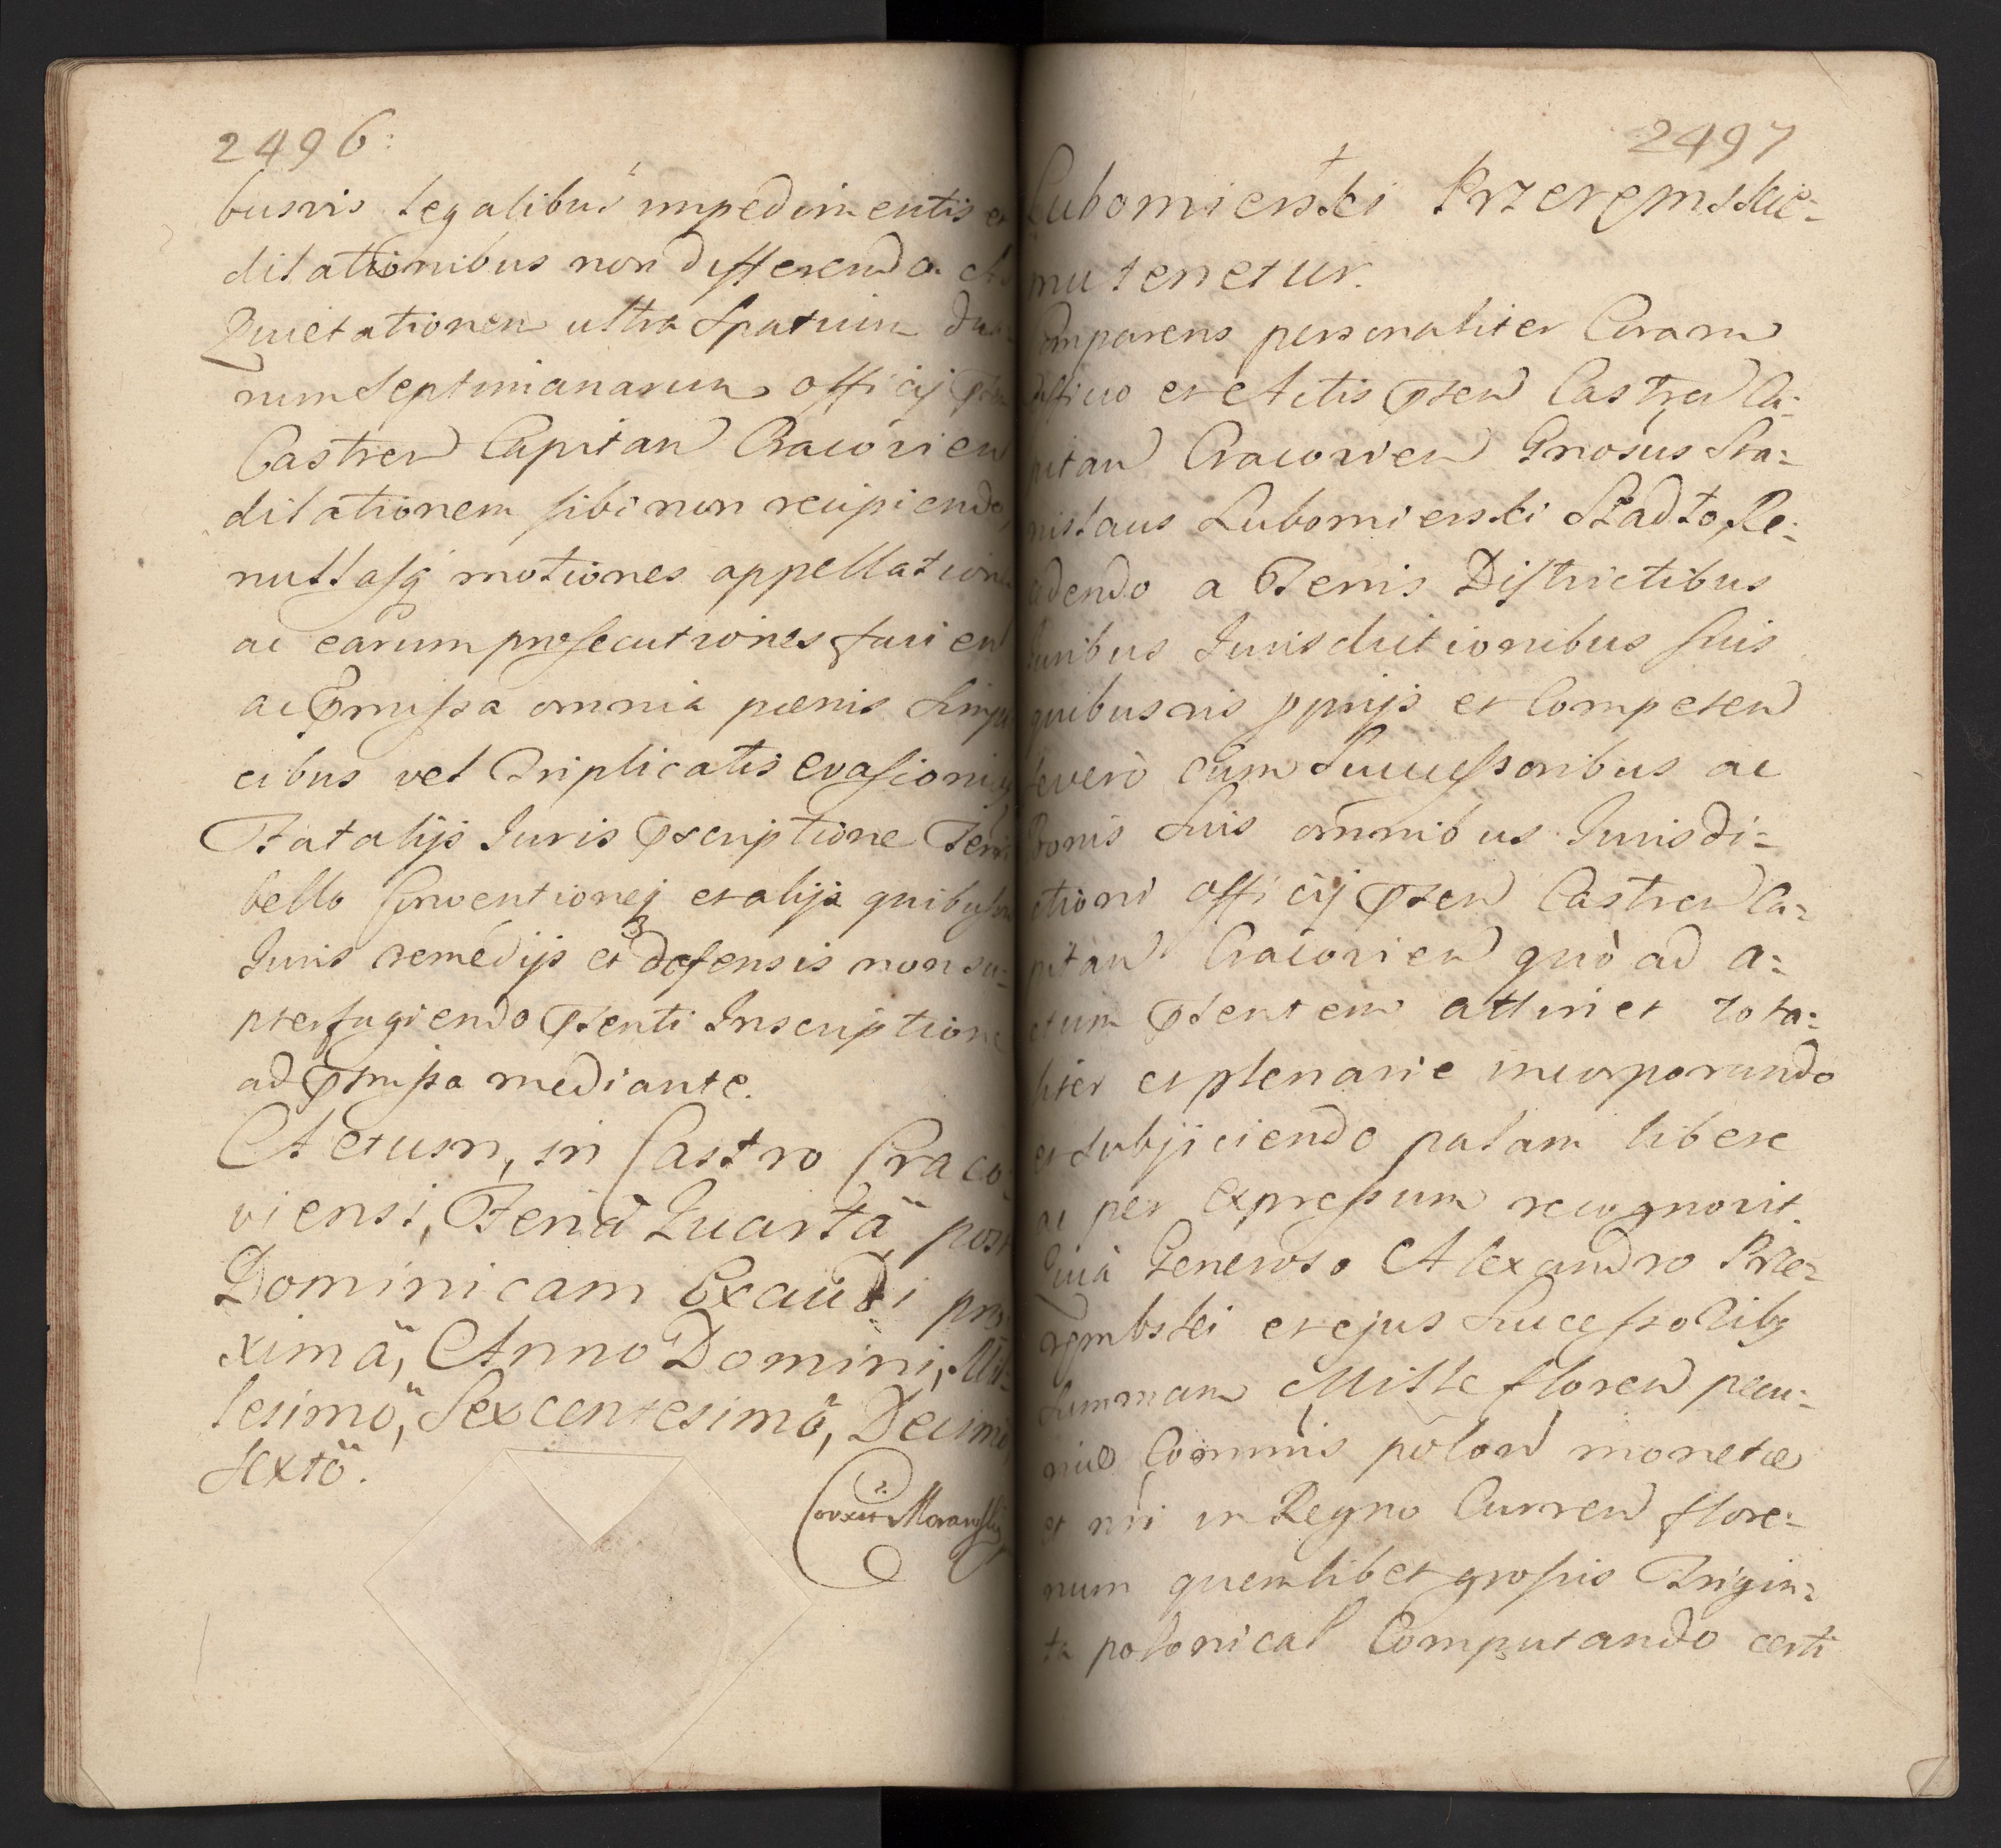 2496:
busvis legalibus impedimentis et
dilationibus non differendo. Ad
Quietationem ultra Spatium dua-
rum Septimanarum officij
Castren Capitan Cracovien
dilationem sibi non recipiendo,
nullasq motiones appellationes
ac earum prosecutiones faciend
ac Pmissa omnia pœnis Simpli
cibus vel Triplicatis evasionibq
Fatalijs Juris Pscriptione Ferri
bello conventionej et alijs quibusvis
Juris remedijs et defensis non su-
pterfugiendo Psenti Inscriptione
ad Pmissa mediante.
Actum, in Castro Craco-
viensi, Feria Quarta post
Dominicam Exaudi pro
xima, Anno Domini, Mil-
lesimo, Sexcentesimo, Decimo
sexto.
Corexit
2497
Lubomierski Przerembskie-
mu tenetur.
Comparens personaliter Coram
Officio et Actis Psen Castren Ca-
pitan Cracovien Gnosus Sta-
nislaus Lubomierski Stadło Re-
cedendo a Terris Districtibus
Juribus Jurisdictionibus suis
quibusvis pprijs et Competen
severò cum Successoribus ac
Bonis Suis omnibus Jurisdi-
ctioni officij Psen Castren Ca-
pitan Cracovien quò ad a-
ctum Psentem attinet tota-
liter et plenarie incorporando
et subjiciendo palam libere
ac per expressum recognovit.
Quia Generoso Alexandro Prze-
rembski et ejus Successoribq
Summam Mille floren pecu-
niæ Commis polon monetæ
et nri in Regno Curren flore-
num quemlibet grossis Trigin-
ta polonical Computando certi